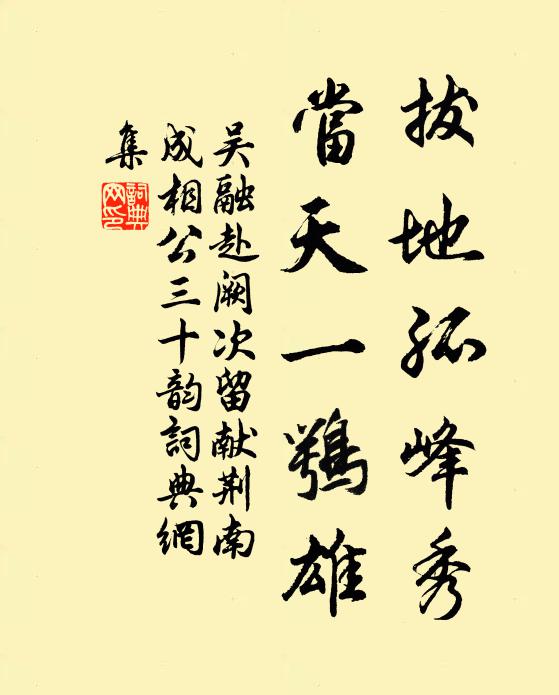 拔地孤峰秀
當天一鶚雄
吴融赴阙次留献荆南
成相公三十韵詞典網
集
詞典網印